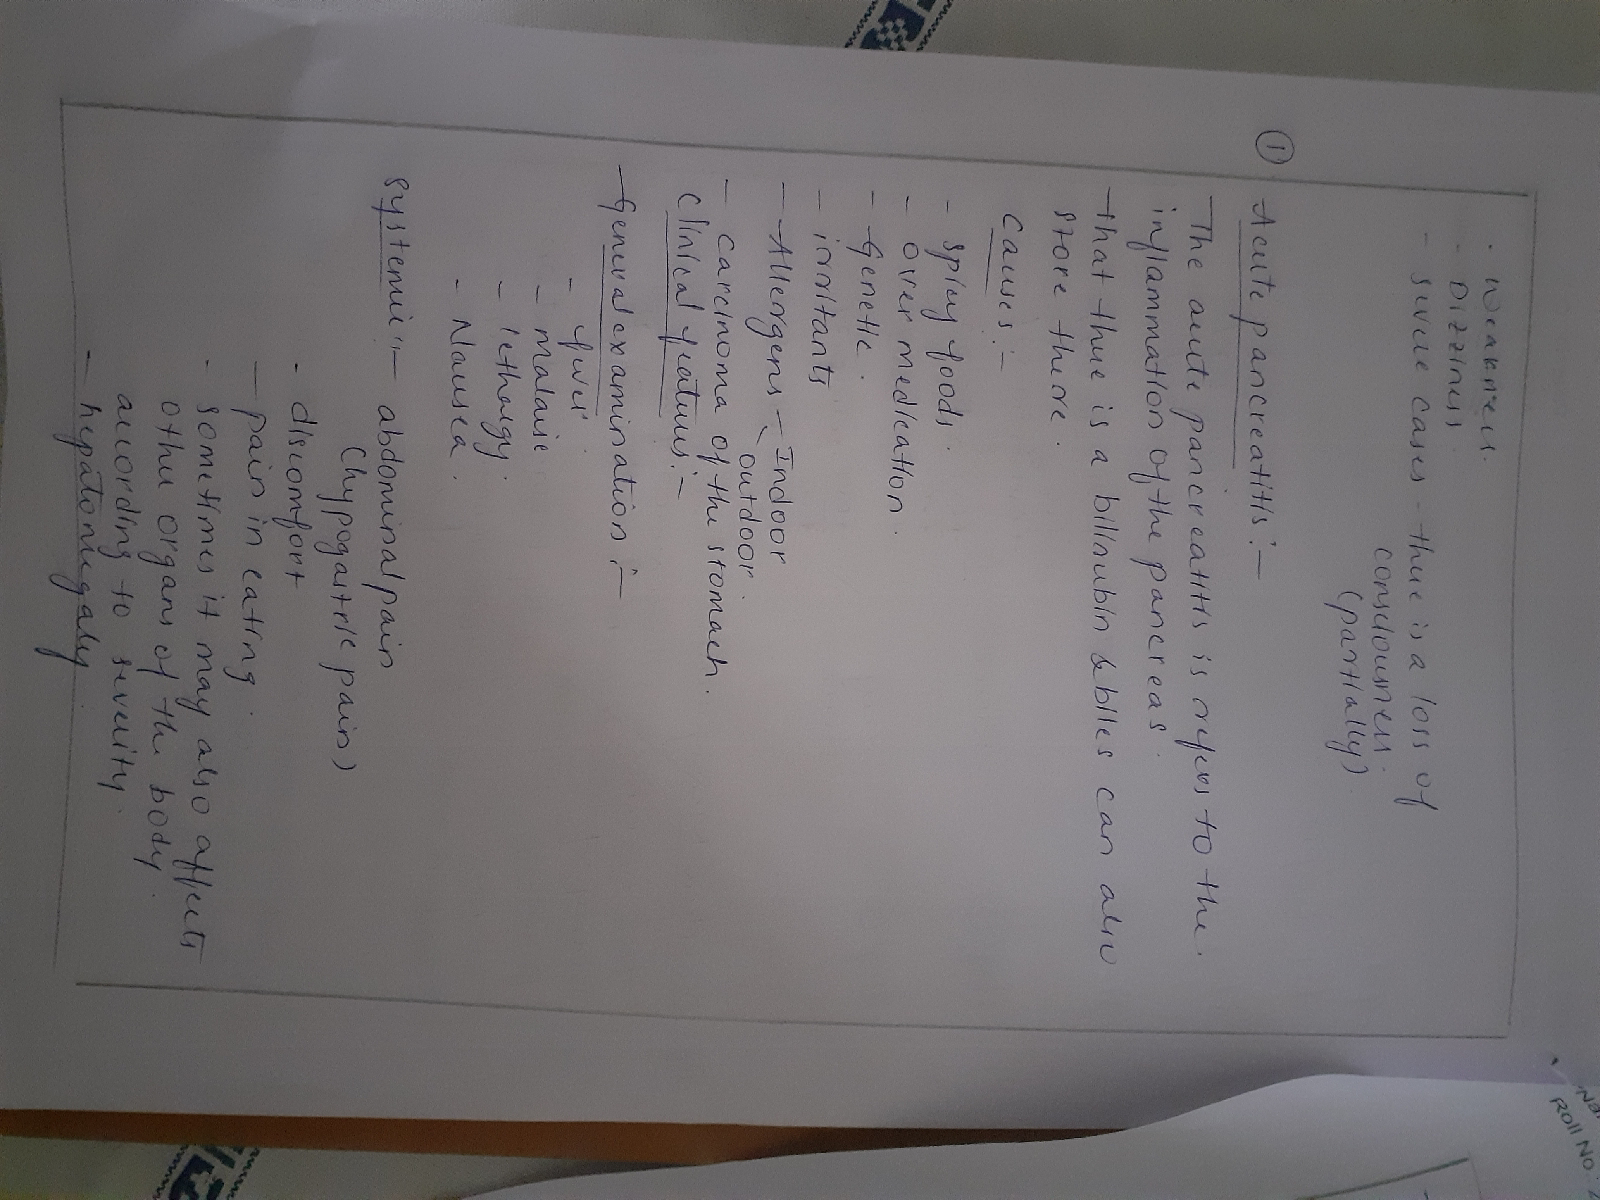 . Weakness.
- Dizziness.
- severe cases - there is a loss of
consciousness.
(partially)
① Acute pancreatitis:-
- The acute pancreatitis is refers to the
inflammation of the pancreas.
- that there is a bilirubin & biles can also
store there.
Causes:-
- spicy foods.
- over medication.
- Genetic.
- irritants
- Allergens - Indoor
outdoor
- carcinoma of the stomach.
Clinical features:-
- General examination:-
- fever
- malaise
- lethargy.
- Nausea.
systemic:- abdominal pain
(hypogastric pain)
- discomfort
- pain in eating.
- sometimes it may also affects
other organs of the body.
according to severity.
- hepatomegaly.
Roll No: